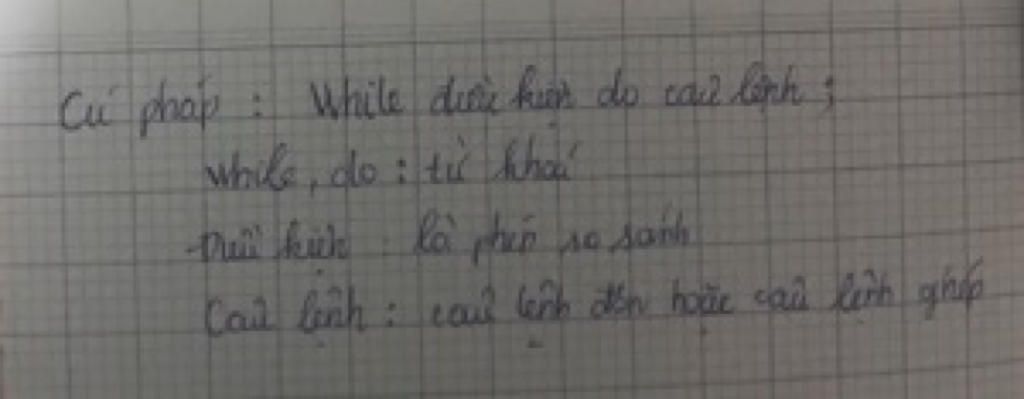 Cú pháp : While điều kiện do câu lệnh ;
while, do : từ khoá
Điều kiện là phép so sánh
Câu lệnh : câu lệnh đơn hoặc câu lệnh ghép